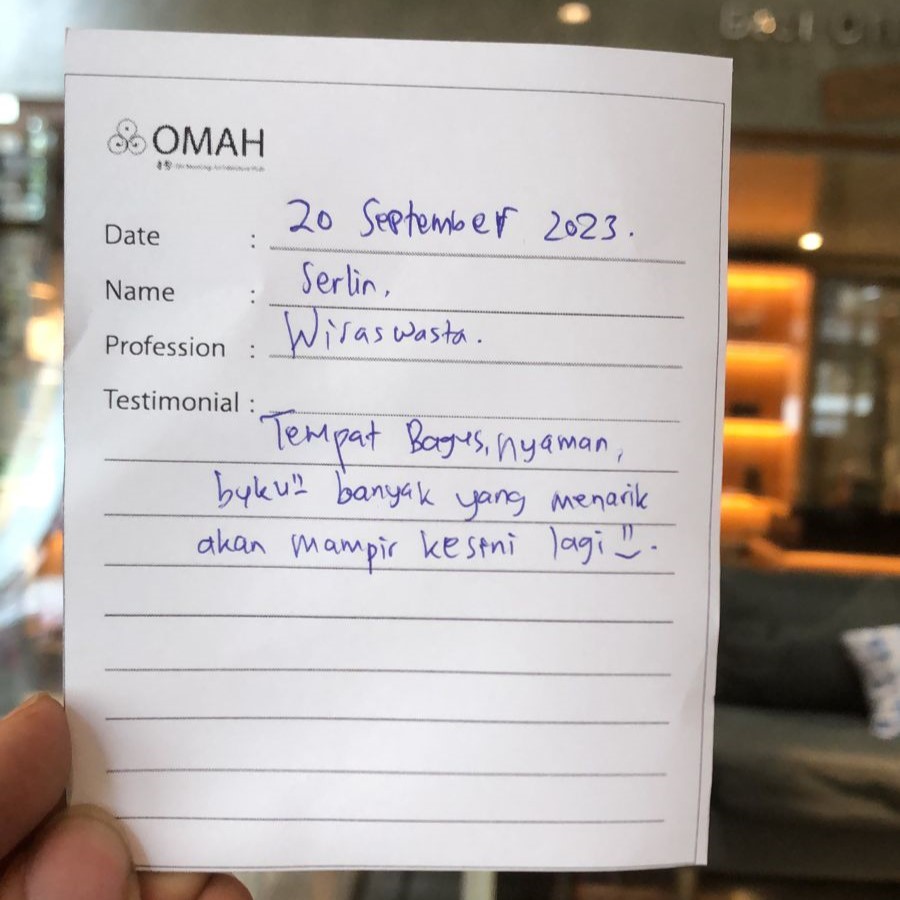 OMAH
Date : 20 September 2023.
Name : Serlin,
Profession : Wiraswasta.
Testimonial :
Tempat Bagus, nyaman,
buku" banyak yang menarik
akan mampir kesini lagi